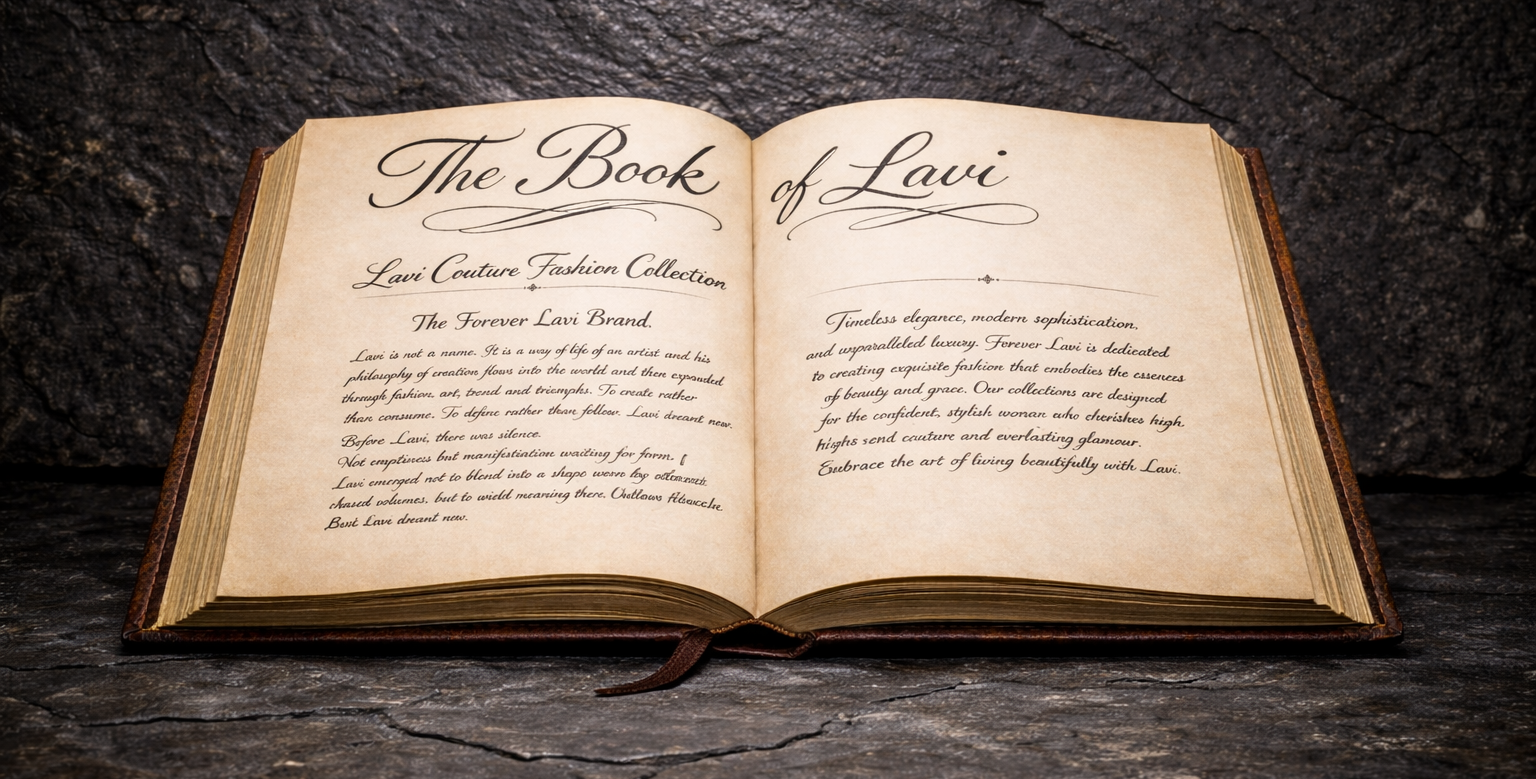 The Book
Lavi Couture Fashion Collection
The Forever Lavi Brand.
Lavi is not a name. It is a way of life of an artist and his
philosophy of creation flows into the world and then expanded
through fashion, art, trend and triemphs. To create rather
than consume. To define rather than follow. Lavi dreant new.
Before Lavi, there was silence.
Not emptiness but manifistiation waiting for form.
Lavi emerged not to blend into a shape worn
volumes, but to wield meaning there. Outlows
Best Lavi dreant new.
of Lavi
Timeless elegance, modern sophistication,
and unparalleled luxury. Forever Lavi is dedicated
to creating exquisite fashion that embodies the essences
of beauty and grace. Our collections are designed
for the confident, stylish woman who cherishes high
send couture and everlasting glamour.
Embrace the art of living beautifully with Lavi.